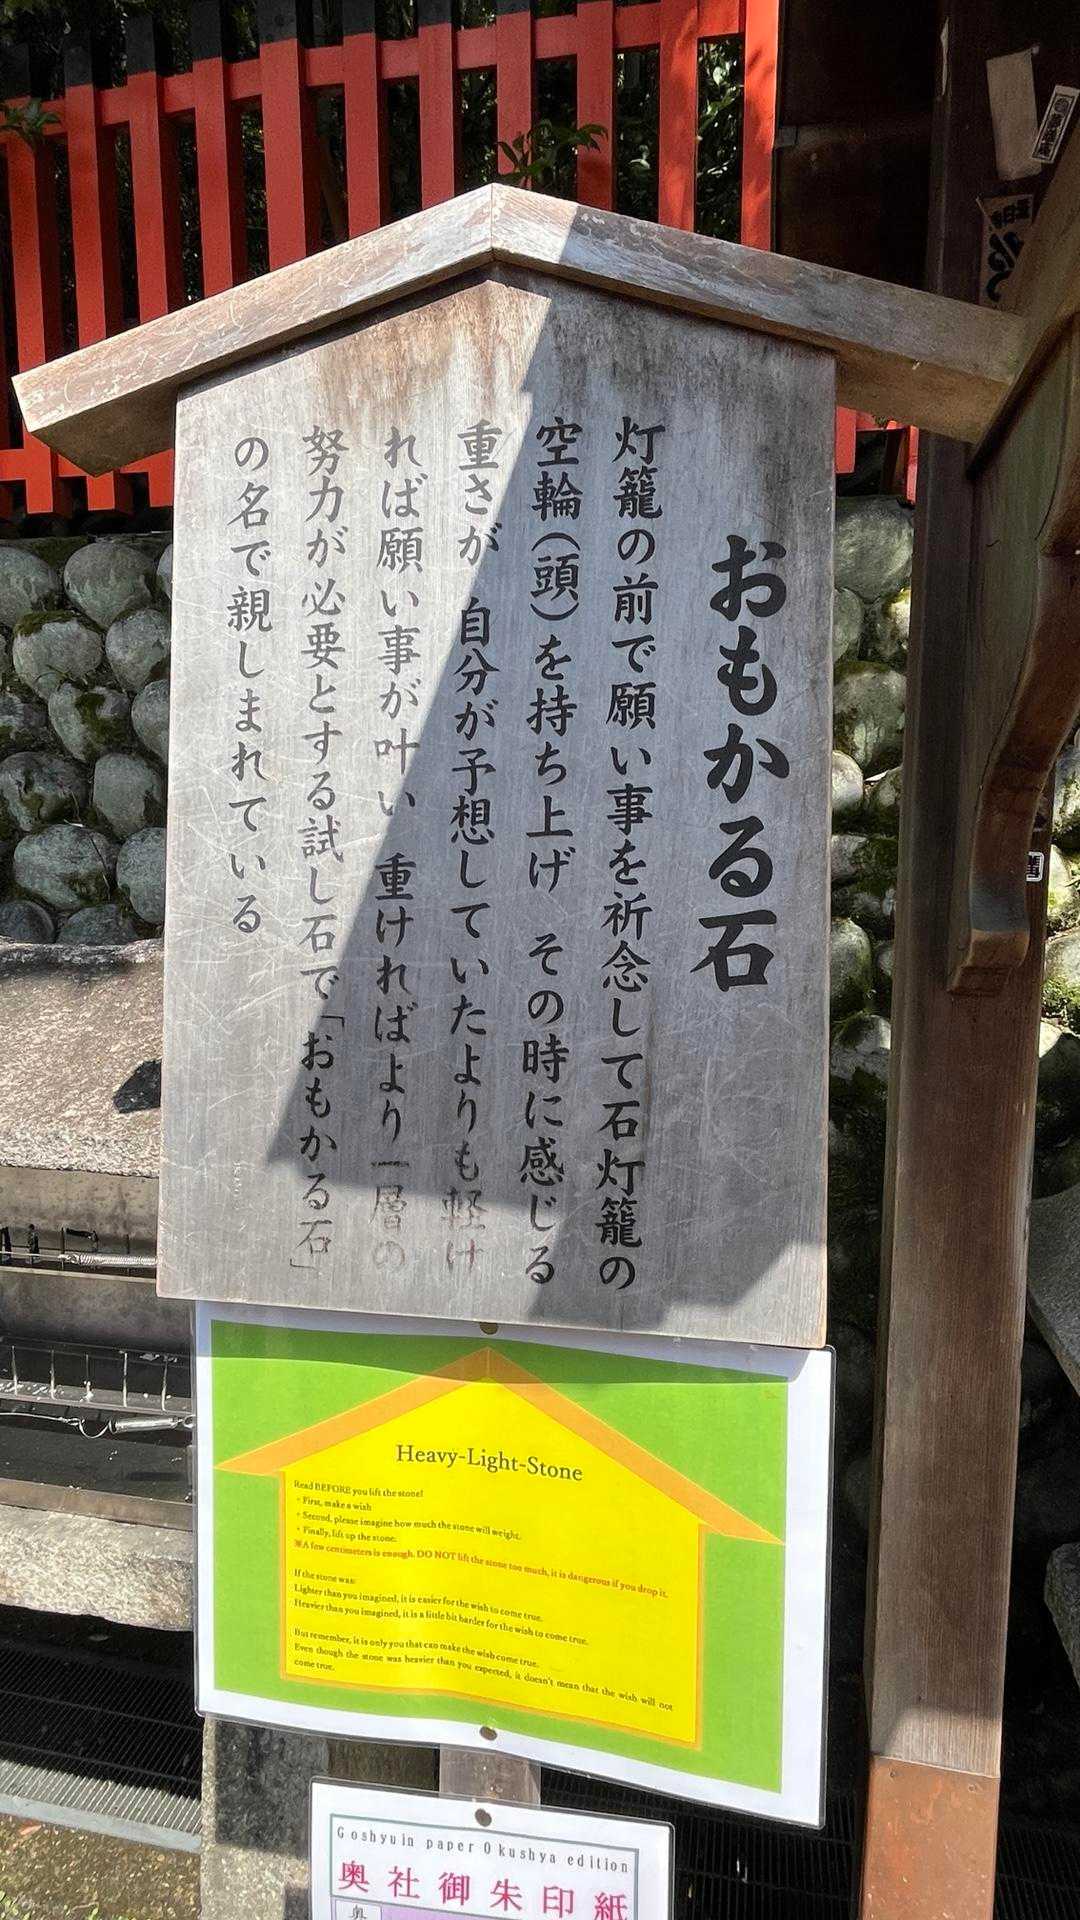 おもかる石
灯籠の前で願い事を祈念して石灯籠の
空輪(頭)を持ち上げ その時に感じる
重さが 自分が予想していたよりも軽け
れば願い事が叶い 重ければより一層の
努力が必要とする試し石で「おもかる石」
の名で親しまれている
Heavy-Light-Stone
Read BEFORE you lift the stone!
・First, make a wish
・Second, please imagine how much the stone will weight.
・Finally, lift up the stone.
※A few centimeters is enough. DO NOT lift the stone too much, it is dangerous if you drop it.
If the stone was:
Lighter than you imagined, it is easier for the wish to come true.
Heavier than you imagined, it is a little bit harder for the wish to come true.
But remember, it is only you that can make the wish come true.
Even though the stone was heavier than you expected, it doesn't mean that the wish will not
come true.
Goshyuin paper Okushya edition
奥社御朱印紙
奥